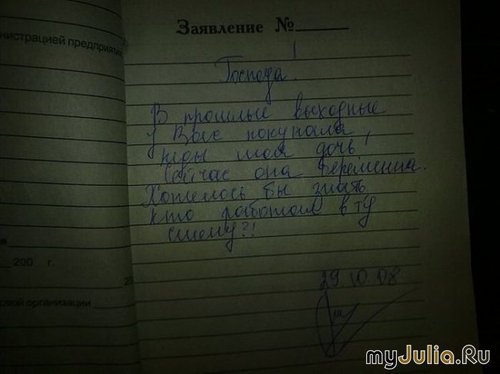 Заявление №
нистрацией предприятия
Господа!
В прошлые выходные
у Вас покупала
кеды моя дочь!
Сейчас она беременна.
Хотелось бы знать
кто работал в ту
смену?!
200 г.
2
29 10 08
овой организации
myJulia.Ru